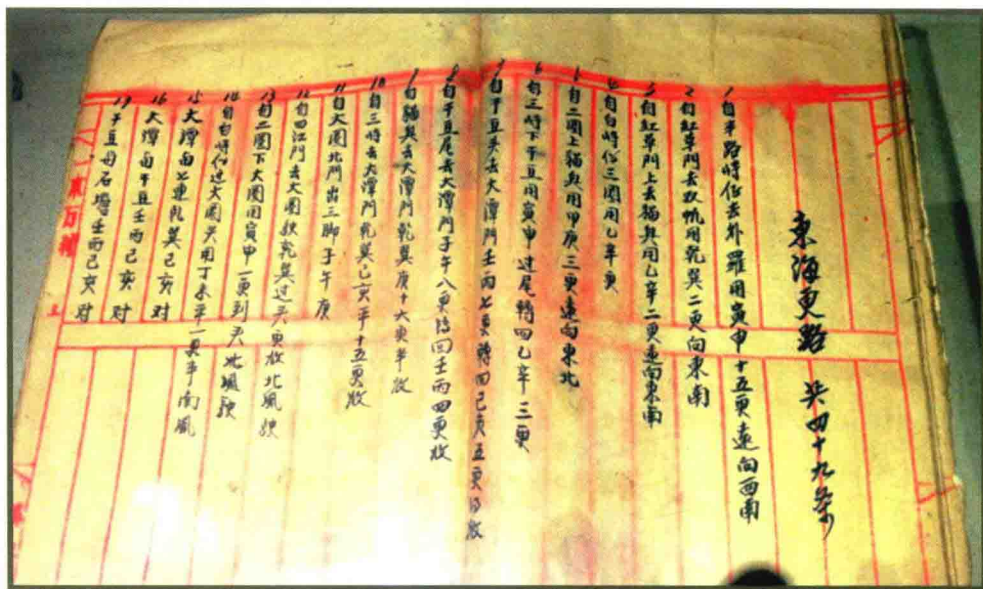 東海更路 共四十九条
1 自半路峙仔去外羅用寅甲十五更遠向西南
2 自紅草門去双帆用乾巽二更向東南
3 自紅草門上去猫兴用乙辛二更遠向東南
4 自白峙仔三圈用乙辛更
5 自三圈上猫兴用甲庚三更遠向東北
6 自三峙下干豆用寅申过尾轉回乙辛三更
7 自干豆头去大潭門壬丙七更轉回己亥五更的收
8 自干豆尾去大潭門子午八更格回壬丙四更收
9 自猫兴去大潭門乾巽庚十六更半收
10 自三峙去大潭門乾巽己亥平十五更收
11 自大圈北門出三脚子午庚
12 自四江門去大圈駛乾巽过头更收北風駛
13 自二圈下大圈用寅甲一更到头北風駛
14 自白峙仔过大圈头用丁未平一更半南風
15 大潭面七連乾巽己亥对
16 大潭面干豆壬丙己亥对
17 干豆母石塘壬丙己亥对